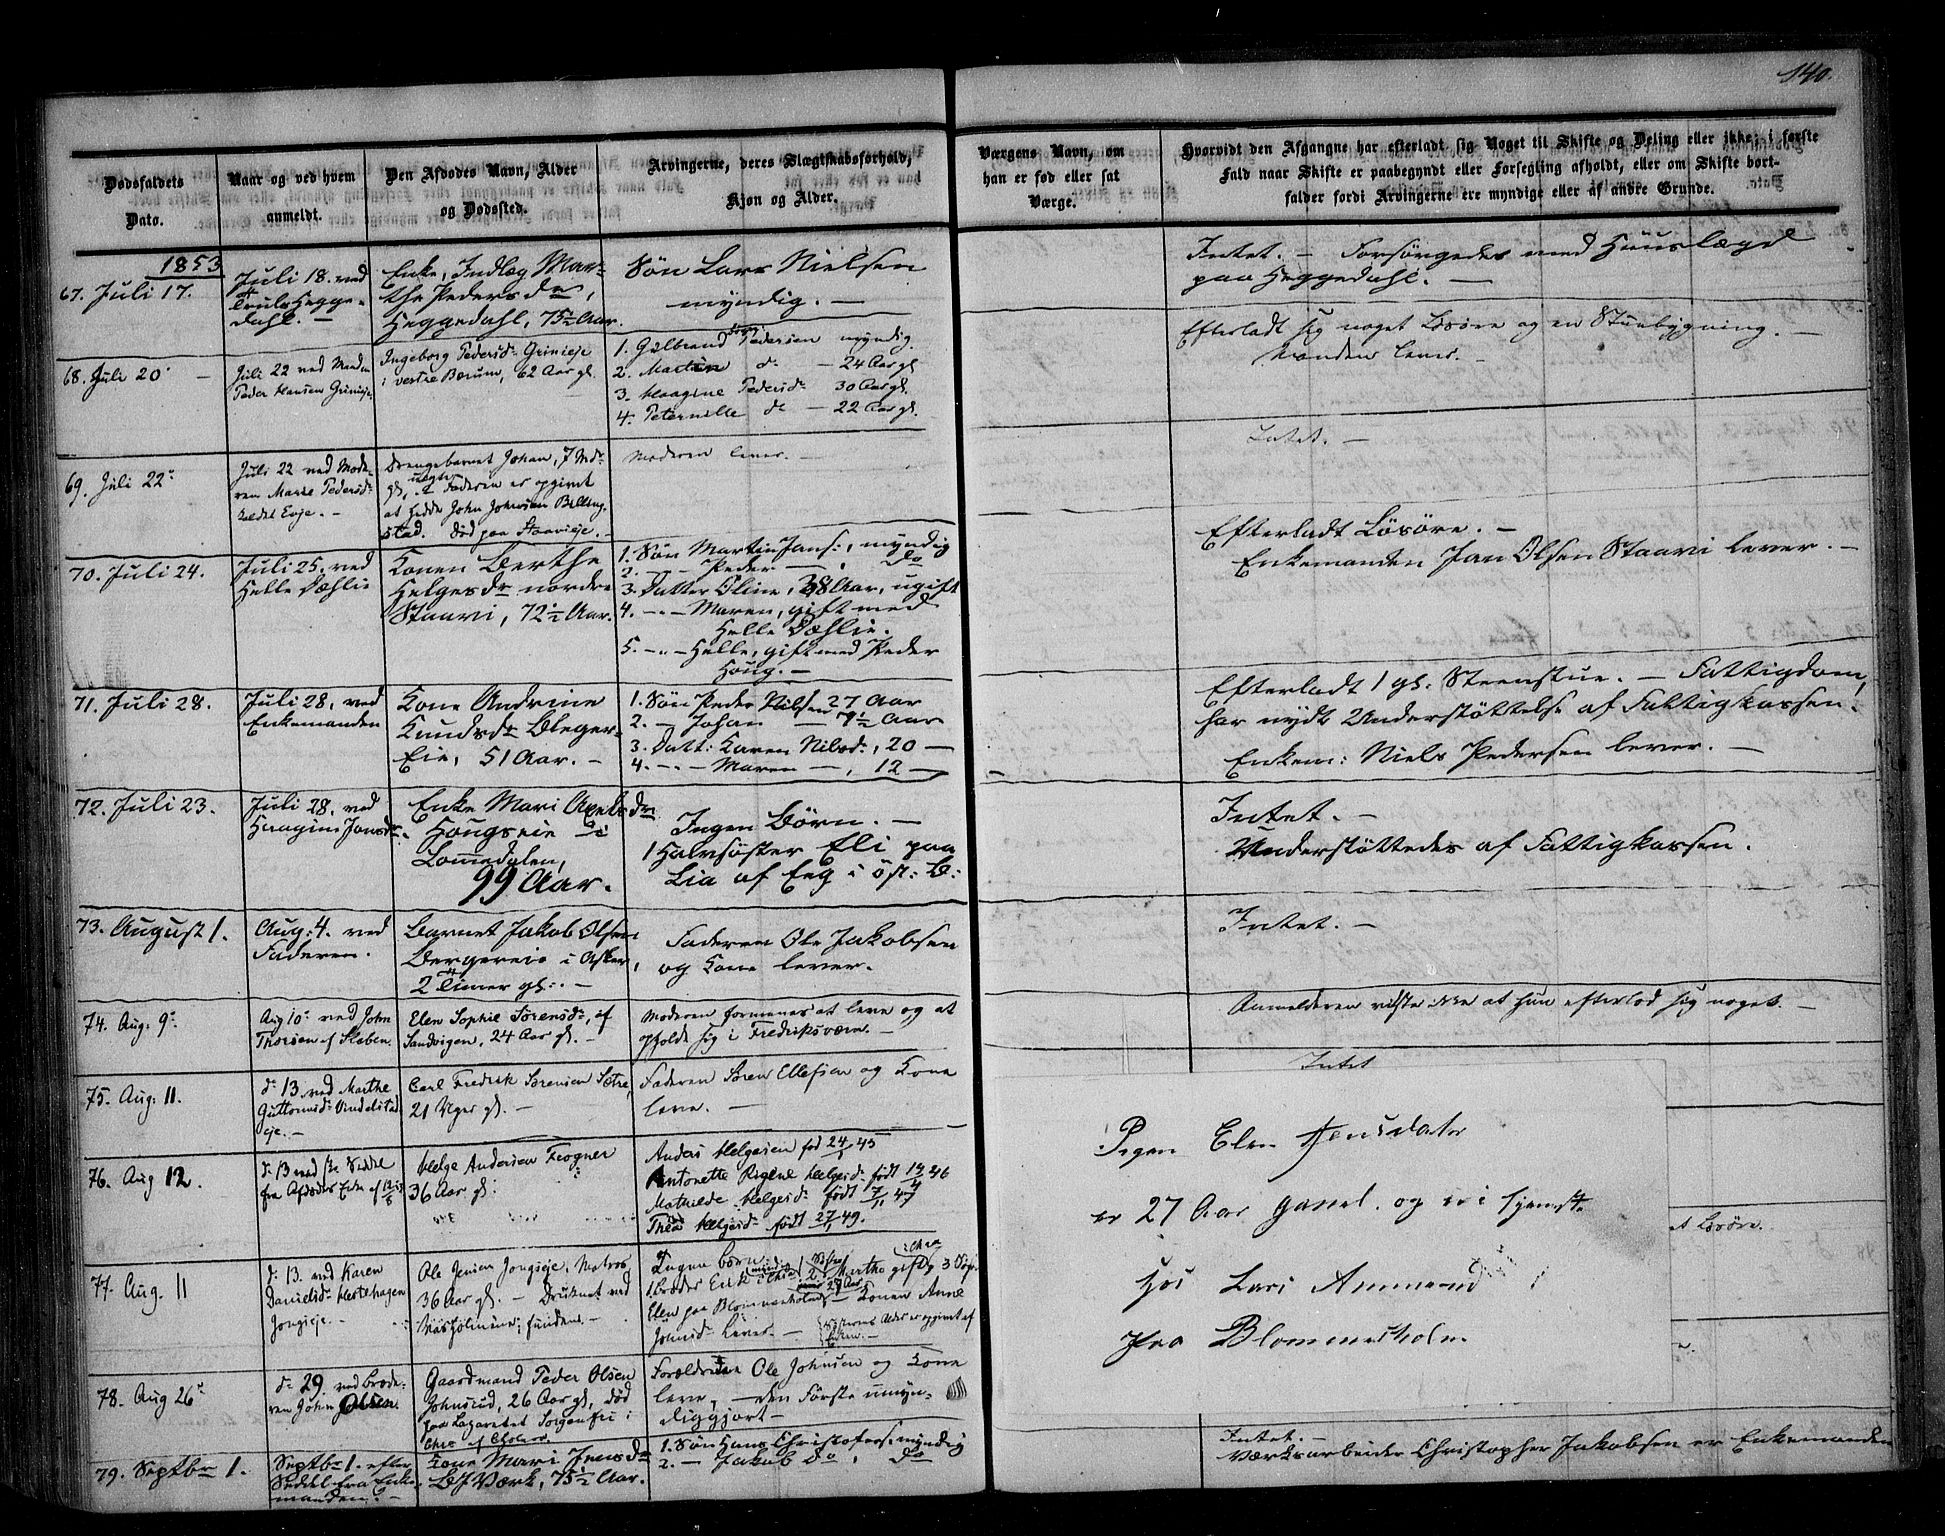 140.
Dødsfaldets
Dato.
Naar og ved hvem
anmeldt.
Den Afdødes Navn, Alder
og Dødssted.
Arvingerne, deres Slægtskabsforhold,
Kjøn og Alder.
Værgens Navn, om
han er fød eller sat
Værge.
Hvorvidt den Afgangne har efterladt sig Noget til Skifte og Deling eller ikke; i første
Fald naar Skifte er paabegyndt eller Forsegling afholdt, eller om Skifte bort-
falder fordi Arvingerne ere myndige eller af andre Grunde.
1853
67. Juli 17.
Juli 18. ved
Truls Hegge-
dahl. —
Enke, Indlæg Mar-
the Pedersdr,
Heggedahl, 75½ Aar.
Søn Lars Nielsen
myndig. —
Intet. — Forsørgedes med Huuslægd
paa Heggedahl. —
68. Juli 20 —
Juli 22 ved Manden
Peder Hansen Grinieje
Ingeborg Pedersdr Grinieje
i vestre Bærum, 62 Aar gl.
1. Gulbrand Pedersen myndig.
2. Martin do — 24 Aar gl.
3. Haagine Pedersdr 30 Aar gl.
4. Peternille do — 22 Aar gl.
Efterladt sig noget Løsøre og en Stuebygning. —
Manden lever. —
69. Juli 22
Juli 22 ved Mode-
ren Marie Pedersdr
Evje. —
Drengebarnet Johan, 7 Mdr
gl, uægte Faderen er opgivet
at hedde John Johnsen Billing-
stad. Død paa Staavieje. —
Moderen lever. —
Intet. —
70. Juli 24.
Juli 25. ved
Helle Dæhlie
Konen Berthe
Helgesdr nordre
Staavi, 72½ Aar.
1. Søn Martin Jans:, myndig
2. — Peder —, do
3. Datter Oline, 38 Aar, ugift
4. -"- Maren, gift med
Helle Dæhlie.
5. -"- Helle, gift med Peder
Houg. —
Efterladt Løsøre. —
Enkemanden Jan Olsen Staavi lever. —
71. Juli 28.
Juli 28. ved
Enkemanden
Kone Andrine
Knudsdr Bleger-
Eie, 51 Aar. —
1. Søn Peder Nilsen 27 Aar
2. — Johan — 7½ Aar
3. Datt: Karen Nilsdr, 20 —
4. -"- Maren —, 12 —
Efterladt 1 gl. Steenstue. — Fattigdom,
har nydt Understøttelse af Fattigkassen.
Enkem: Niels Pedersen lever. —
72. Juli 23.
Juli 28. ved
Haagine Jansdr.
Enke Mari Axelsdr
Hougseie i
Lommedalen,
99 Aar.
Ingen Børn. —
1 Halvsøster Eli paa
Lia af Eeg i øst: B:
Intet. —
Understøttedes af Fattigkassen.
73. August 1.
Aug: 4. ved
Faderen.
Barnet Jakob Olsen
Bergereie i Asker,
2 Timer gl:. —
Faderen Ole Jakobsen
og Kone lever.
Intet. —
74. Aug: 9
Aug 10 ved John
Thorsen af Slæben.
Elen Sophie Sørensdr, af
Sandvigen, 24 Aar gl. —
Moderen formenes at leve og at
opholde sig i Fredriksværn. —
Anmelderen vidste ikke at hun efterlod sig noget. —
75. Aug: 11.
do 13 ved Marthe
Guttormsdr Vindelstad
eje. —
Carl Fredrik Sørensen Sætre,
21 Uger gl. —
Faderen Søren Ellefsen og Kone
leve. —
Intet
76. Aug 12.
do 13 ved Seddel
fra Afdødes Enke af 12/8 53
Helge Andersen Frogner
36 Aar gl:
Anders Helgesen fød 24/1 45
Antonette Regine Helgesdr født 14/4 46
Mathilde Helgesdr født 7/1 47
Thea Helgesdr født 27/1 49.
t Løsøre.
77. Aug. 11
do 13. ved Karen
Danielsdr Hestehagen
Jongseje. —
Ole Jensen Jongseje, Matros
36 Aar gl. — Druknet ved
Næsholmene; funden. —
Ingen børn
1 broder Erik myndig Marthe gift 3 Søs:
Elen paa Blommenholm — Konen Anne
Johnsdr lever. —
78. Aug 26
do 29. ved Brode-
ren John Olsen
Gaardmand Peder Olsen
Johnsrud, 26 Aar gl, død
paa Lazarettet Sorgenfri i
Chra af Cholera
Forældrene Ole Johnsen og Kone
leve, — den Første umyn-
diggjort —
79. Septbr 1.
Septbr 1. efter
Seddel fra Enke-
manden. —
Kone Mari Jensdr
BJVærk, 75½ Aar.
1. Søn Hans Christofers: myndig
2. — Jakob Do, Do
Intet. —
Værksarbeider Christopher Jakobsen er Enkemanden
Pigen Elen Jensdatter
er 27 Aar gaml. og er i tjeneste
hos Lars Ammund
fra Blommenholm